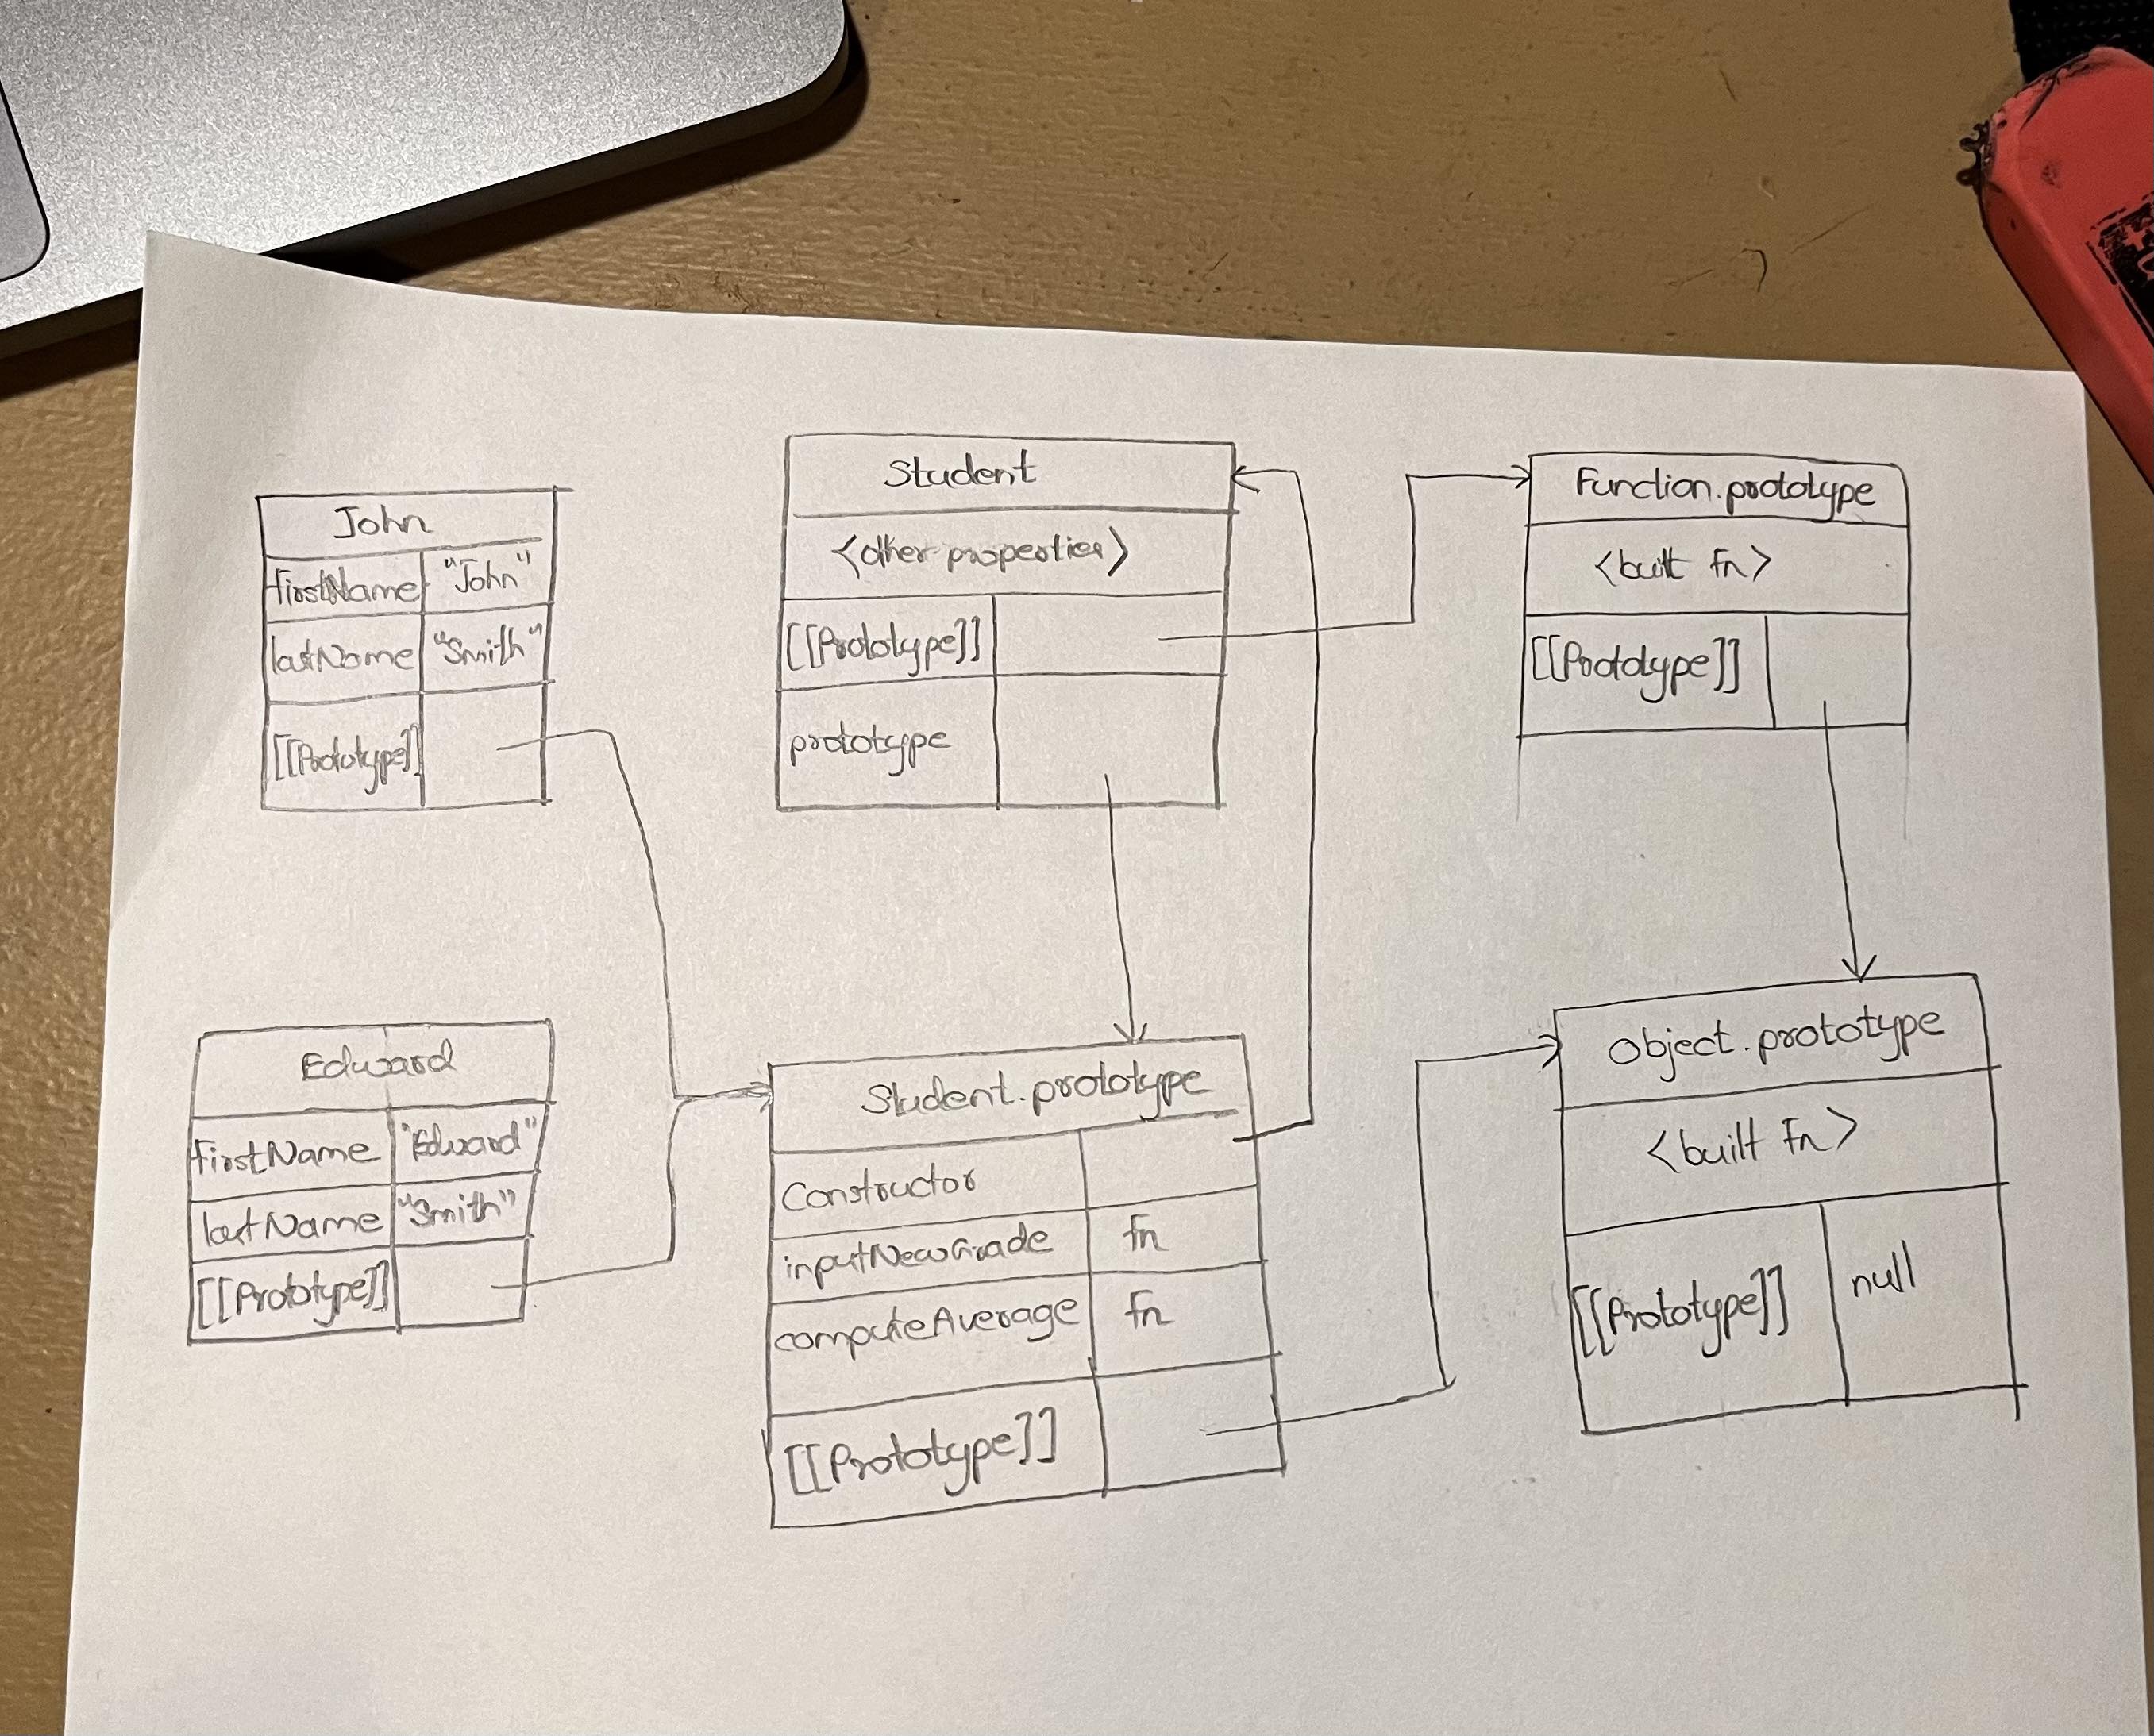 John
firstName "John"
lastName "Smith"
[[Prototype]]
Student
<other properties>
[[Prototype]]
prototype
Function.prototype
<built fn>
[[Prototype]]
Edward
firstName "Edward"
lastName "Smith"
[[Prototype]]
Student.prototype
Constructor
inputNewGrade fn
computeAverage fn
[[Prototype]]
Object.prototype
<built fn>
[[Prototype]] null